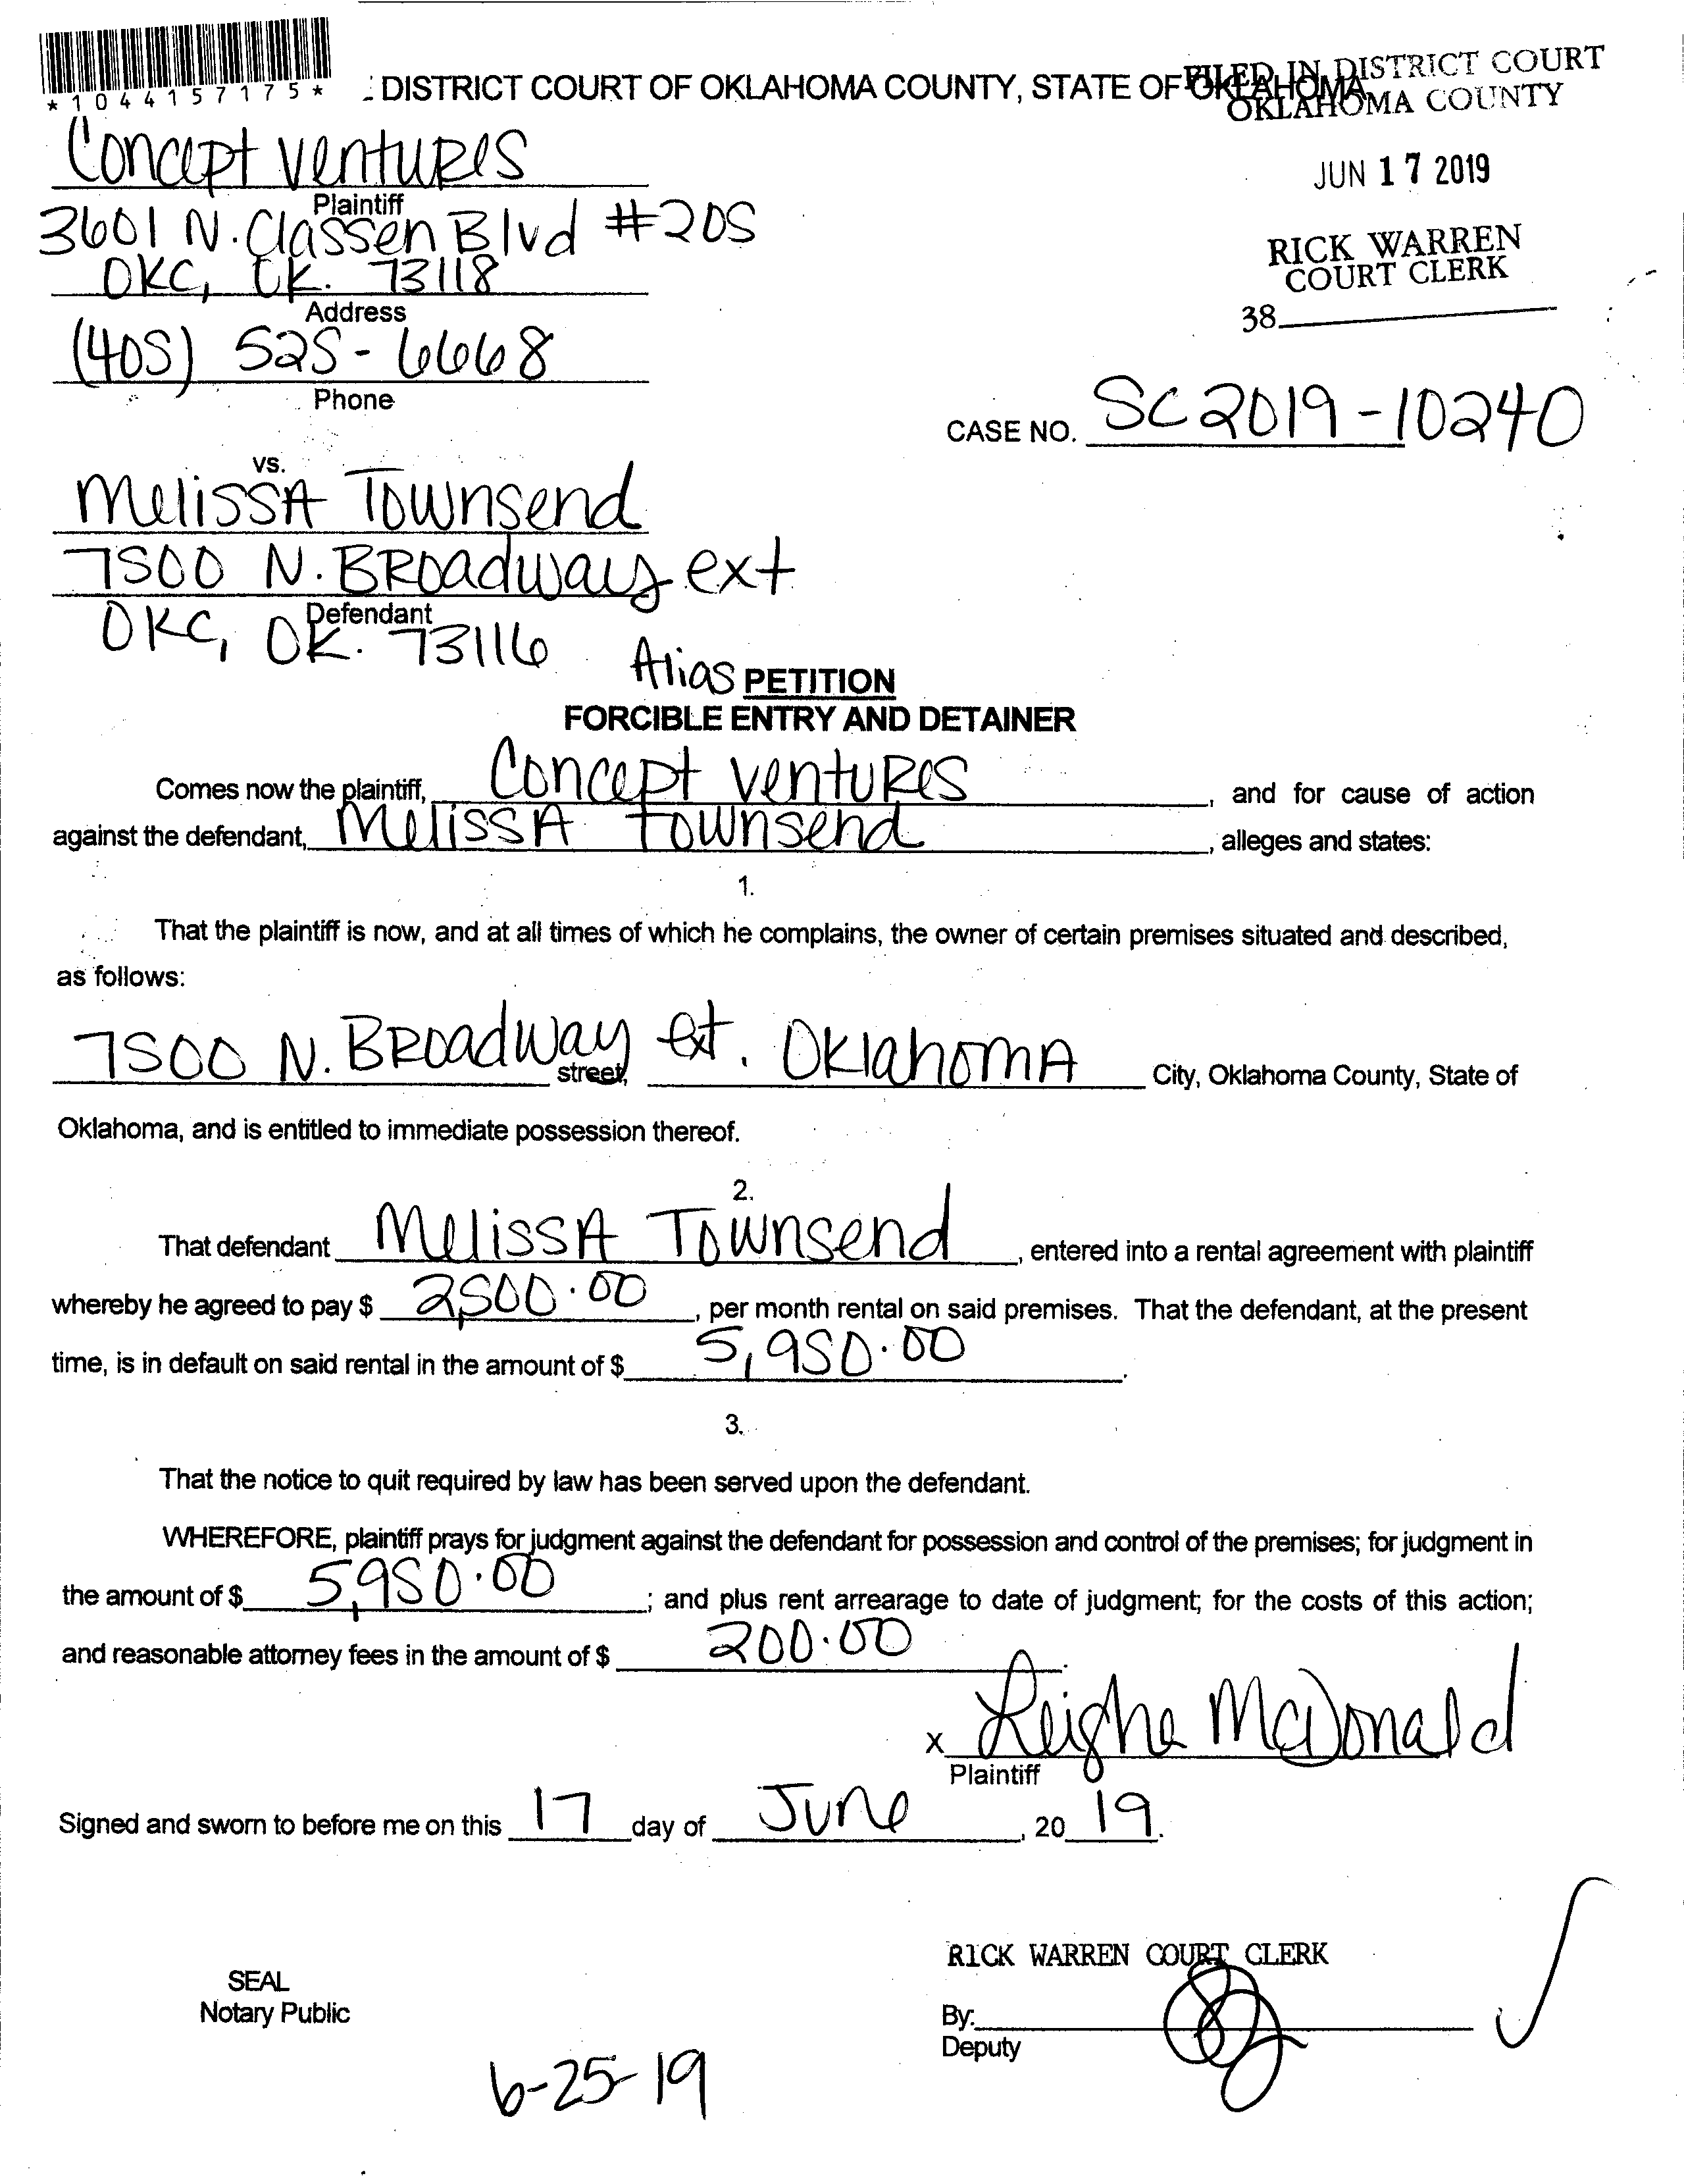 *1044157175*
DISTRICT COURT OF OKLAHOMA COUNTY, STATE OF OKLAHOMA
FILED IN DISTRICT COURT
OKLAHOMA COUNTY
JUN 17 2019
RICK WARREN
COURT CLERK
38
Concept Ventures
Plaintiff
3601 N. Classen Blvd #205
OKC, OK. 73118
Address
(405) 525-6668
Phone
CASE NO. SC2019-10240
vs.
Melissa Townsend
7500 N. Broadway ext
Defendant
OKC, OK. 73116
Alias PETITION
FORCIBLE ENTRY AND DETAINER
Comes now the plaintiff, Concept Ventures, and for cause of action
against the defendant, Melissa Townsend, alleges and states:
1.
That the plaintiff is now, and at all times of which he complains, the owner of certain premises situated and described,
as follows:
7500 N. Broadway ext. Oklahoma City, Oklahoma County, State of
street,
Oklahoma, and is entitled to immediate possession thereof.
2.
That defendant Melissa Townsend, entered into a rental agreement with plaintiff
whereby he agreed to pay $ 2,500.00, per month rental on said premises. That the defendant, at the present
time, is in default on said rental in the amount of $ 5,950.00.
3.
That the notice to quit required by law has been served upon the defendant.
WHEREFORE, plaintiff prays for judgment against the defendant for possession and control of the premises; for judgment in
the amount of $ 5,950.00; and plus rent arrearage to date of judgment; for the costs of this action;
and reasonable attorney fees in the amount of $ 200.00.
x Leigha McDonald
Plaintiff
Signed and sworn to before me on this 17 day of June, 2019.
RICK WARREN COURT CLERK
SEAL
Notary Public
By:
Deputy
6-25-19